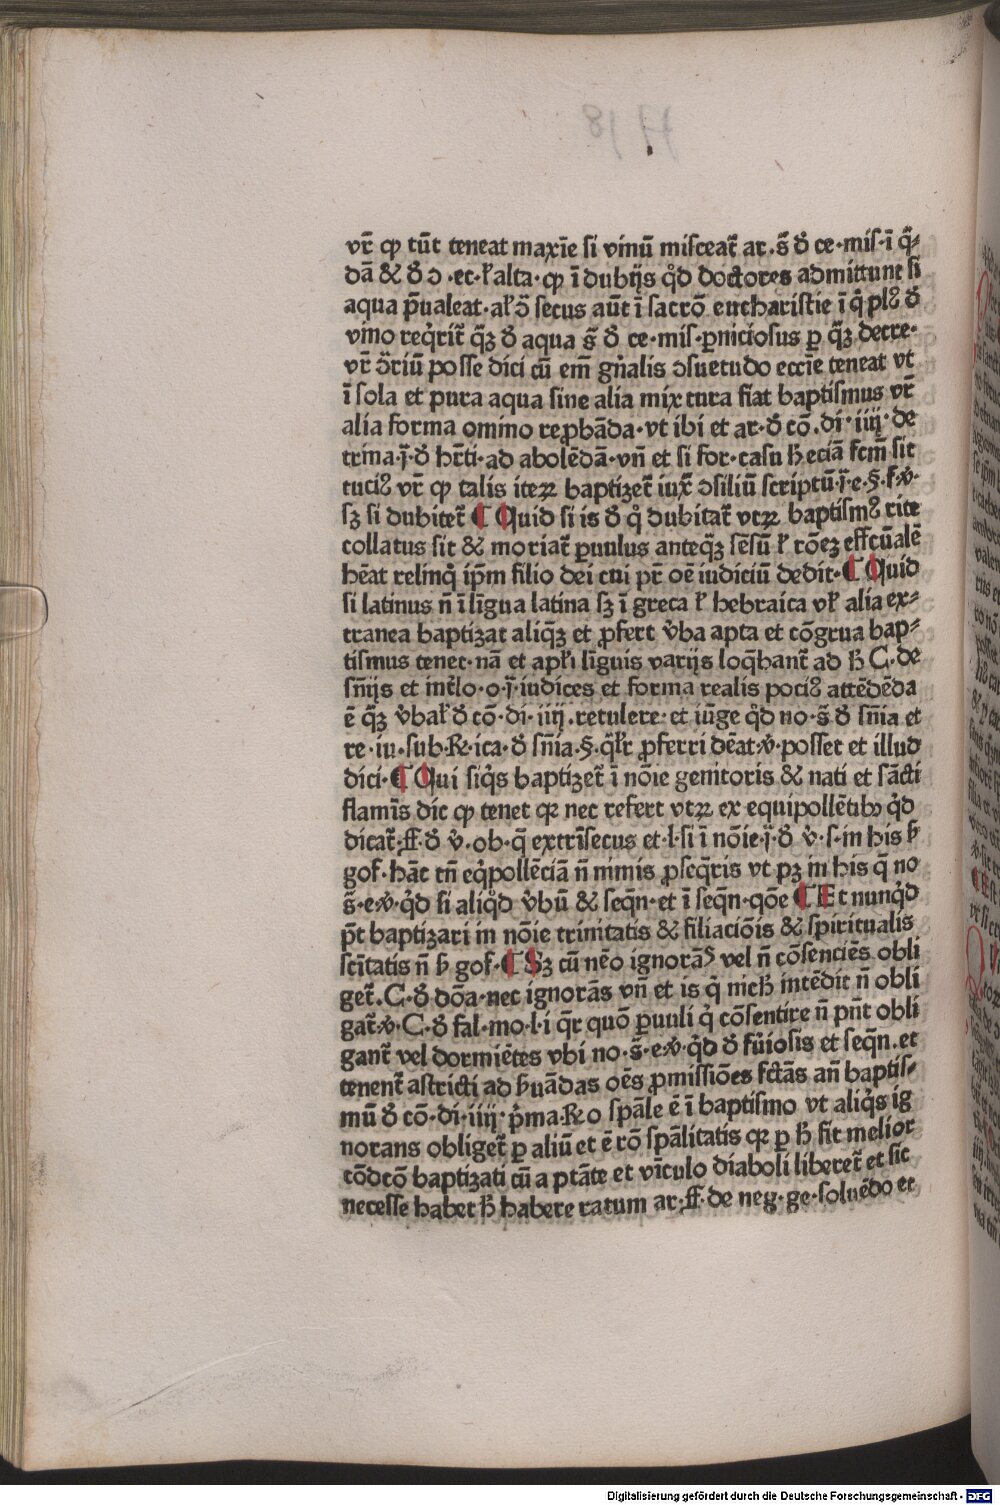 vr̄ ꝙ tūt teneat maxīe si vinū misceat᷑ ar.s̄ ð ce·mis·ī q̄⸗
dā & ð ↄ·ec·ł alta·ꝙ ī dubijs qͥd doctores admittunt si
aqua p̄ualeat·ał ↄ̄ secus aūt ī sacrō eucharistie ī qͥ plꝰ ð
vino reqͥrit᷑ q̄ꝫ ð aqua s̄ ð ce·mis·ꝑniciosus ꝑ q̄ꝫ decre·
vr̄ ↄ̄riū posse dici cū em̄ gn̄alis ↄsuetudo eccīe teneat vt
ī sola et pura aqua sine alia mixtura fiat baptismus vr̄
alia forma omino reꝓbāda·vt ibi et ar·ð cō.di·iiij·de
trina·ī·ð hr̄ti·ad abolēdā·vn̄ et si for·casu ħ eciā fcm̄ sit
tuciꝰ vr̄ ꝙ talis iteꝝ baptizet᷑ iux̄ ↄsiliū scriptū·ī·e·§·f·v̓·
sꝫ si dubitet᷑ ¶ Quid si is ð qͥ dubitat᷑ vtꝝ baptismꝰ rite
collatus sit & moriat᷑ ꝑuulus anteqͣꝫ sēsū ł rōeꝫ effcūalē
hēat relinqͥ ip̄m filio dei cui pr̄ oē iudiciū dedit·¶ Quid
si latinus n̄ ī līgua latina sꝫ ī greca ł hebraica vł alia ex⸗
tranea baptizat aliqͣꝫ et ꝓfert v̓ba apta et cōgrua bap⸗
tismus tenet·nā et apłi līguis varijs loqͣbant᷑ ad ħ C·de
sn̄ijs et int̓lo·o·ī·iudices et forma realis pociꝰ attēdēda
ē q̄ꝫ v̓bał ð cō·di·iiij.retulere·et iūge qͥd no·s̄ ð sn̄ia et
re·iu·sub·R·ica·ð sn̄ia·§·qͣlr̄ ꝓferri dēat·v̓·posset et illud
dici·¶ Qui siqͥs baptizet᷑ ī nōie genitoris & nati et sācti
flamīs dic ꝙ tenet qꝛ nec refert vtꝝ ex equipollētibꝫ qͥd
dicat᷑·ff·ð v̓.ob·q̄ extrīsecus et·l·si ī nōie·ī·ð v̓·s·in his ƀ
gof·hāc tn̄ eqͥpollēciā n̄ nimis ꝓseq̄ris vt pꝫ in his q̄ no
s̄·e·v̓·qͥd si aliqͥd v̓bū & seqn̄·et ī seqn̄·qōe ¶ Et nunqͥd
p̄t baptizari in nōie trinitatis & filiaciōis & spiritualis
scītatis n̄ ƀ gof·¶ Sꝫ cū nēo ignorās vel n̄ cōsenciēs obli
get᷑.C·ð dōa·nec ignorās vn̄ et is qͥ nich̄ intēdit n̄ obli
gat᷑·v̓·C·ð fal·mo·l·i qr̄ quō ꝑuuli qͥ cōsentire n̄ pn̄t obli
gant᷑ vel dormiētes vbi no·s̄·e·v̓·qͥd ð fu̓iosis et seqn̄.et
tenent᷑ astricti ad ƀuādas oēs ꝓmissiōes fctās an̄ baptis⸗
mū ð cō·di·iiij·pͥma·Ro spāle ē ī baptismo vt aliqͥs ig
norans obliget᷑ ꝑ aliū et ē rō spālitatis qꝛ ꝑ ħ fit melior
cōdcō baptizati cū a ptāte et vīculo diaboli liberet᷑ et sic
necesse habet ħ habere ratum ar·ff·de neg·ge·soluēdo et
Digitalisierung gefördert durch die Deutsche Forschungsgemeinschaft - DFG